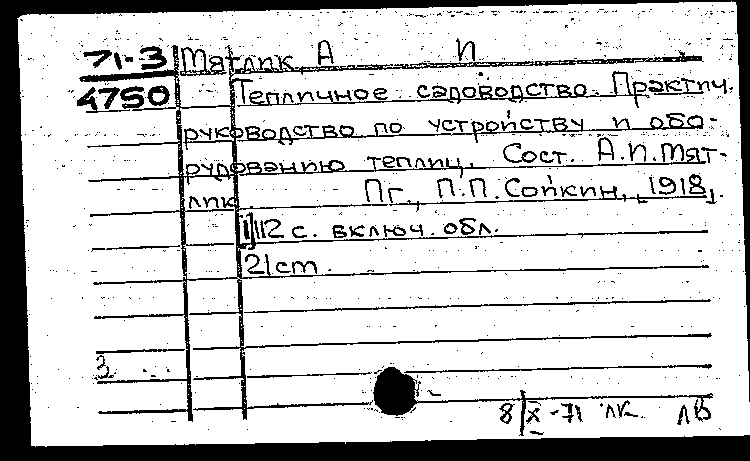 71-3 Мятлик, А П
4750 Тепличное садоводство. Практич.
руководство по устройству и обо-
рудованию теплиц. Сост. А.П.Мят-
лик. Пг., П.П.Сойкин, [1918].
[1]112 с. включ. обл.
21 cm.
3
8/X-71 лк лв